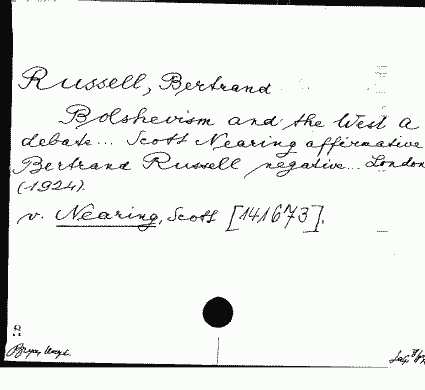 Russell, Bertrand
Bolshevism and the West a
debate... Scott Nearing affirmative
Bertrand Russell negative... London
(1924).
v. Nearing, Scott [141673].